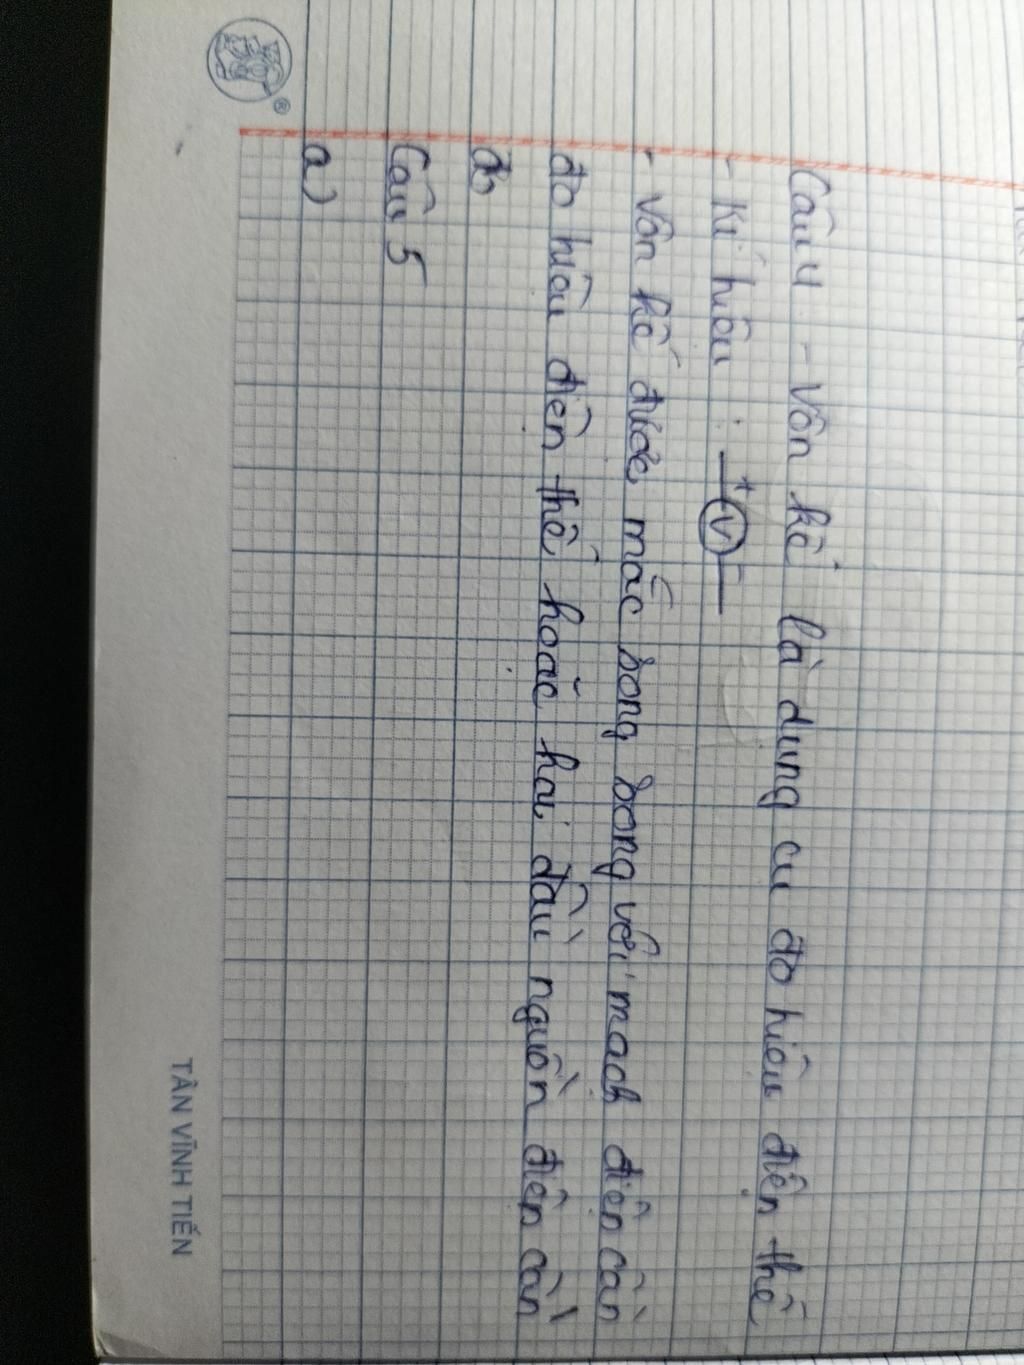 Câu 4 - Vôn kế là dụng cụ đo hiệu điện thế
- Kí hiệu : + V -
- Vôn kế được mắc song song với mạch điện cần
đo hiệu điện thế hoặc hai đầu nguồn điện cần
đo
Câu 5
a)
®
TÂN VĨNH TIẾN